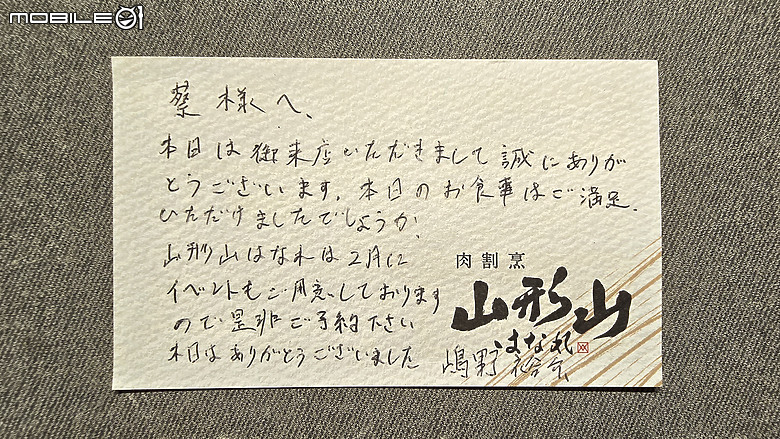 MOBILE01
蔡様へ、
本日は御来店いただきまして誠にありが
とうございます。本日のお食事はご満足、
いただけましたでしょうか。
山形山はなれは2月に
イベントもご用意しております
ので是非ご予約下さい
本日はありがとうございました
肉割烹
山形山
はなれ
嶋野